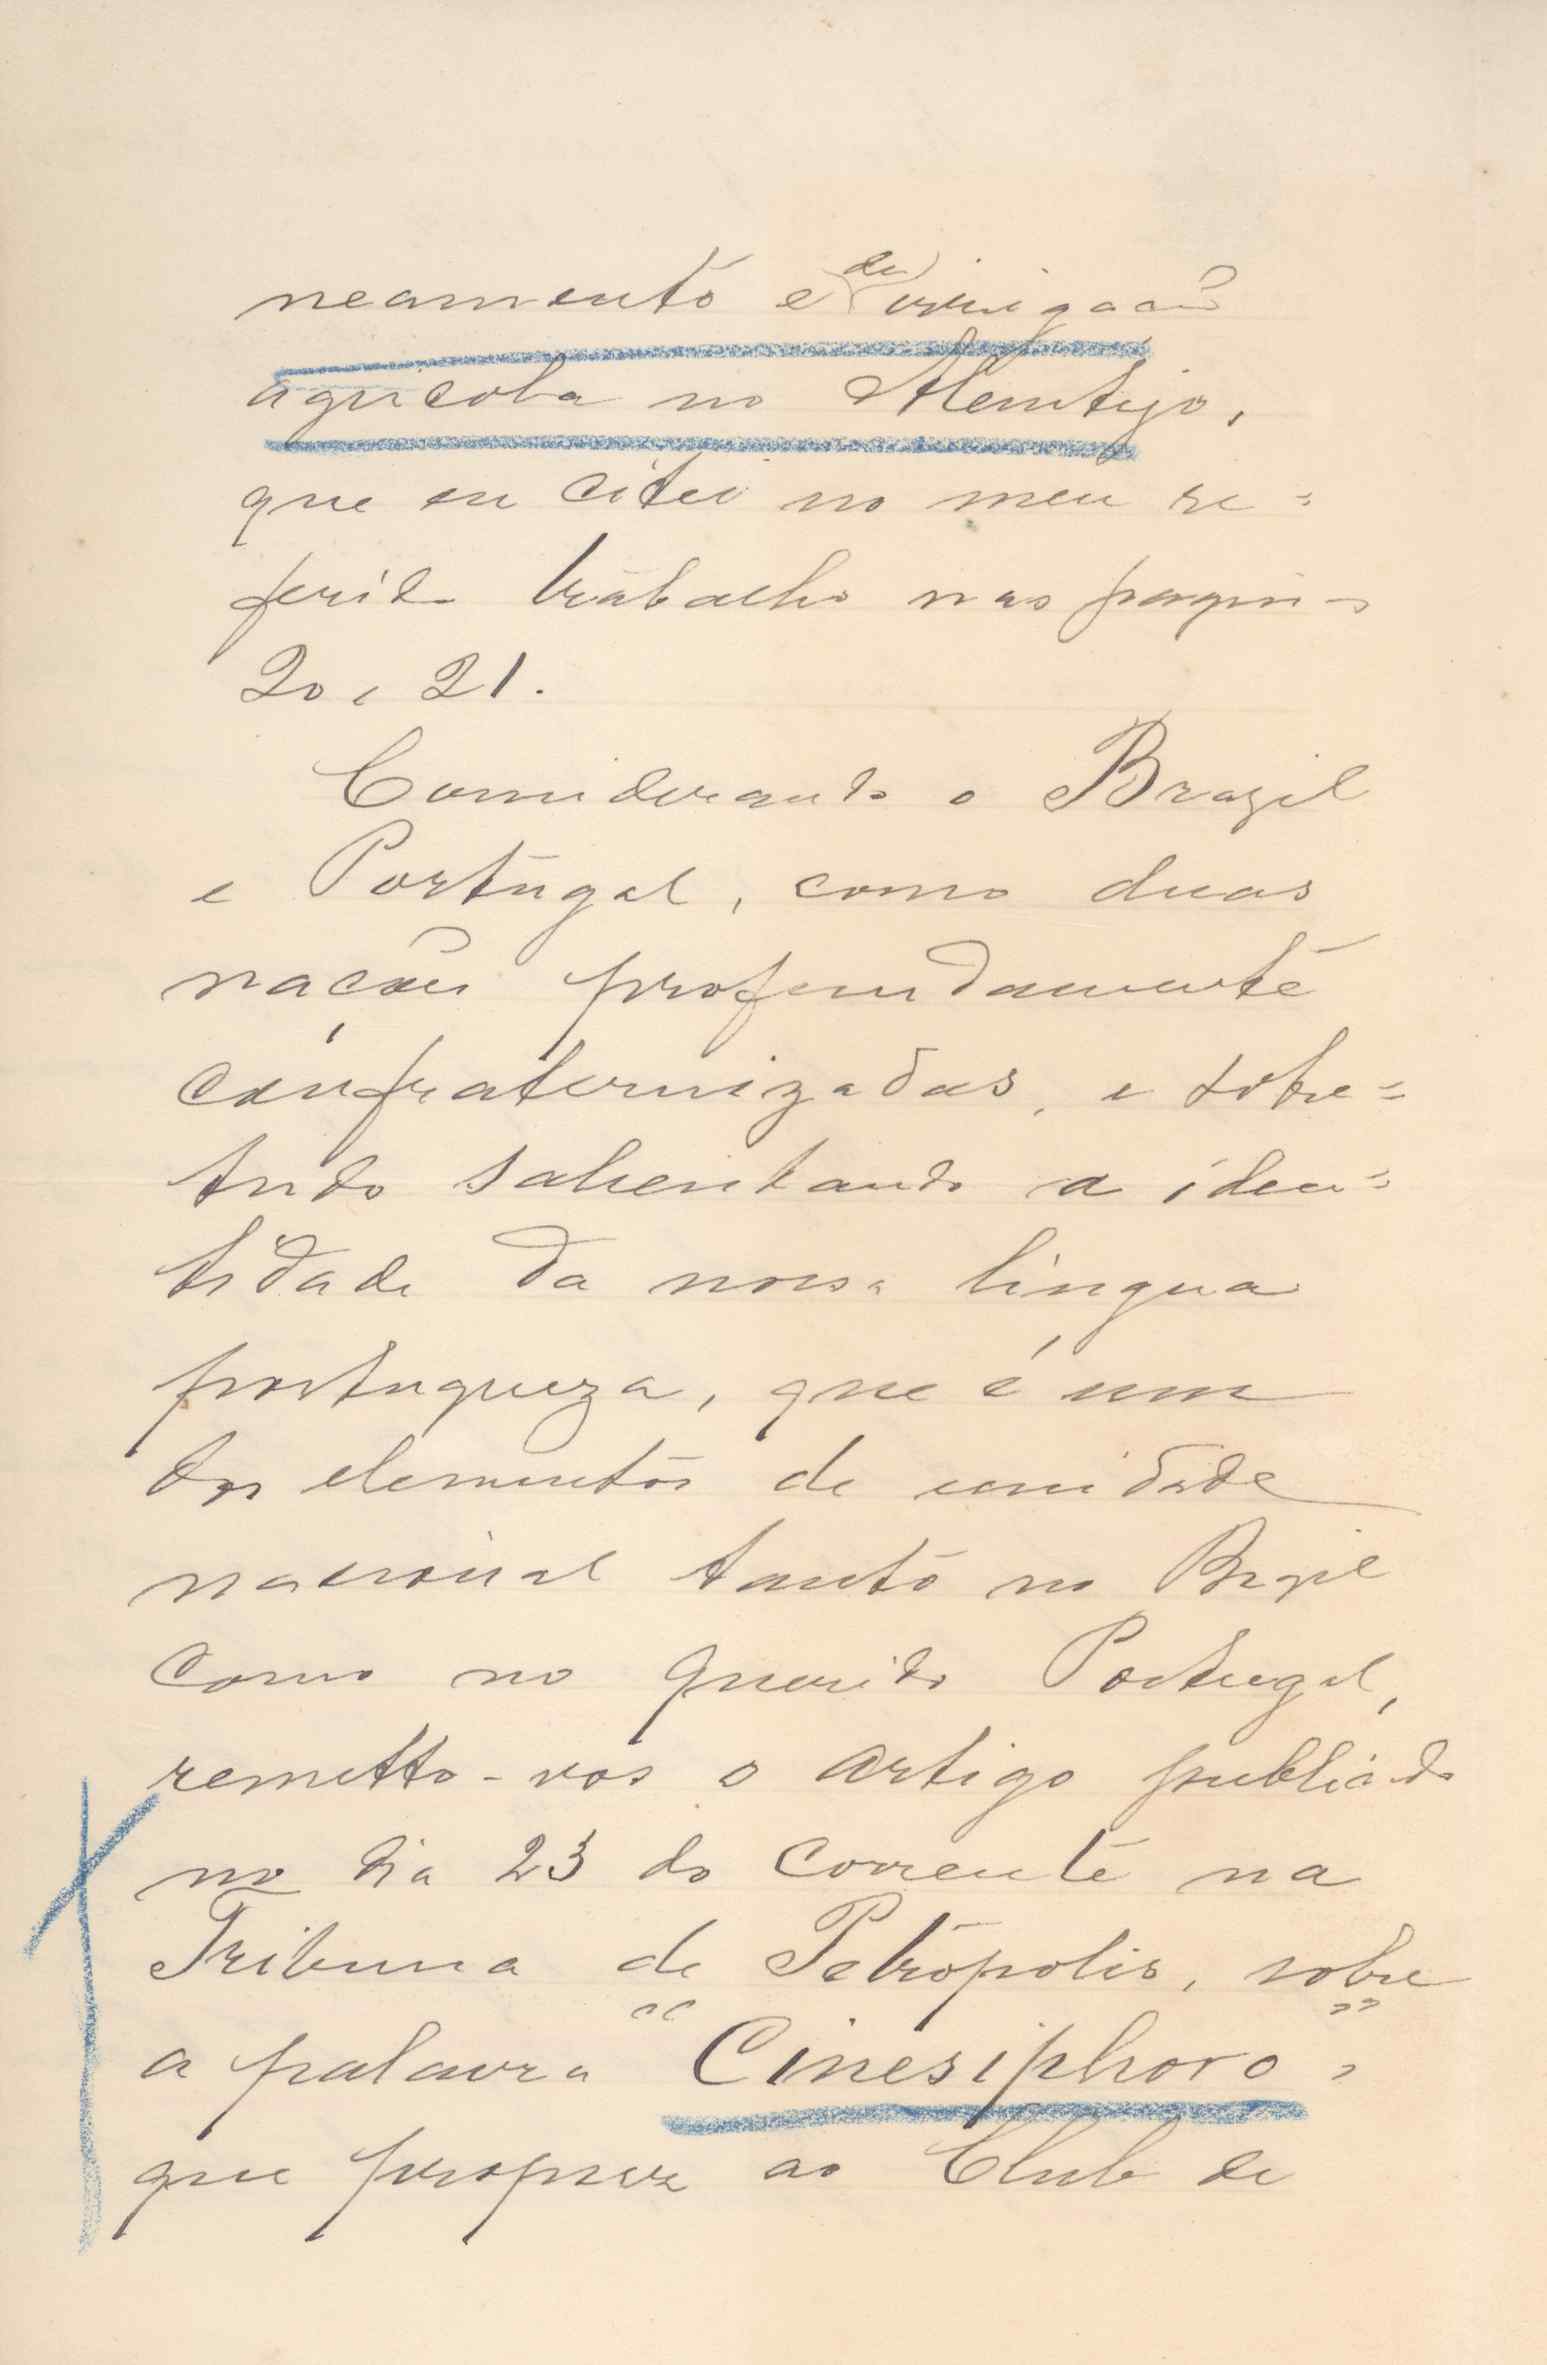 neamento e de irrigação
agricola no Alemtejo,
que eu citei no meu re=
ferido trabalho nas paginas
20 e 21.
Considerando o Brazil
e Portugal, como duas
nações profundamente
confraternizadas, e sobre=
tudo salientando a iden=
tidade da nossa lingua
portugueza, que é um
dos elementos de unidade
nacional tanto no Brazil
como no querido Portugal,
remetto-vos o artigo publicado
no dia 23 do corrente na
Tribuna de Petropolis, sobre
a palavra "Cinesiphoro",
que propuz ao Club de